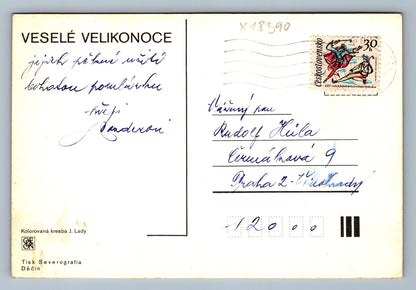 x 18390
VESELÉ VELIKONOCE
jejich pěkné užití
bohatou pomlázku
přejí
Československo
30
Vážený pan
Rudolf Hůla
Čermákova 9
Praha 2 - Vinohrady
12000
Kolorovaná kresba J. Lady
Tisk Severografia
Děčín